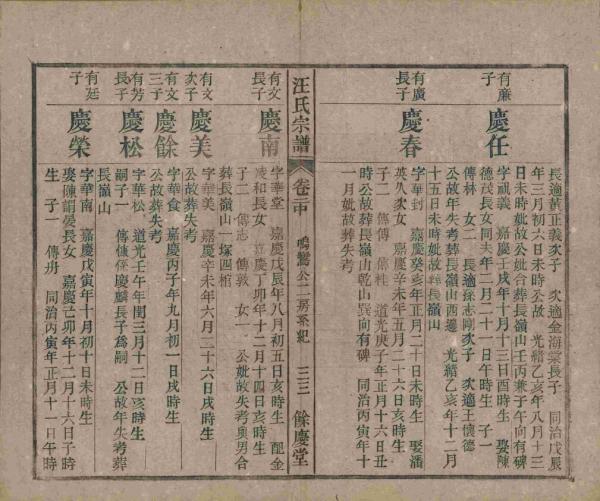 長適黃正義次子 次適金海棠長子 同治戊辰
年三月初六日未時公故 光緒乙亥年八月十三
日未時妣故公妣合葬長嶺山壬丙兼子午向有碑
有廉
子
慶任
字祖義 嘉慶壬戌年十月十三日酉時生 娶陳
德茂長女同夫年二月二十一日午時生 子一
傳林 女二 長適孫志剛次子 次適王懷德
公故年失考葬長嶺山西邊 光緒乙亥年十二月
十五日未時妣故葬長嶺山
有廣
長子
慶春
字華封 嘉慶癸亥年二月二十日未時生 娶潘
英久次女 嘉慶辛未年五月二十六日亥時生
子二 傳傳 傳桂 道光庚子年正月十六日丑
時公故葬長嶺山乾山巽向有碑 同治丙寅年十
一月妣故葬失考
汪氏宗譜 卷二十 鳴鸞公二房系紀 三三 餘慶堂
有文
長子
慶南
字華堂 嘉慶戊辰年八月初五日亥時生 配金
凌和長女 嘉慶丁卯年十二月十四日亥時生
子二 傳志 傳敦 女一 公妣故失考與男合
葬長嶺山一塚四棺
有文
次子
慶美
字華美 嘉慶辛未年六月二十六日戌時生
公故葬失考
有文
三子
慶餘
字華食 嘉慶丙子年九月初一日戌時生
公故葬失考
有芳
長子
慶松
字華松 道光壬午年閏三月十二日亥時生
嗣子一 傳 係慶麟長子為嗣 公故年失考葬
長嶺山
有廷
子
慶榮
字華南 嘉慶戊寅年十月初十日未時生
娶陳調晏長女 嘉慶己卯年十二月十六日子時
生 子一 傳 同治丙寅年正月十一日午時